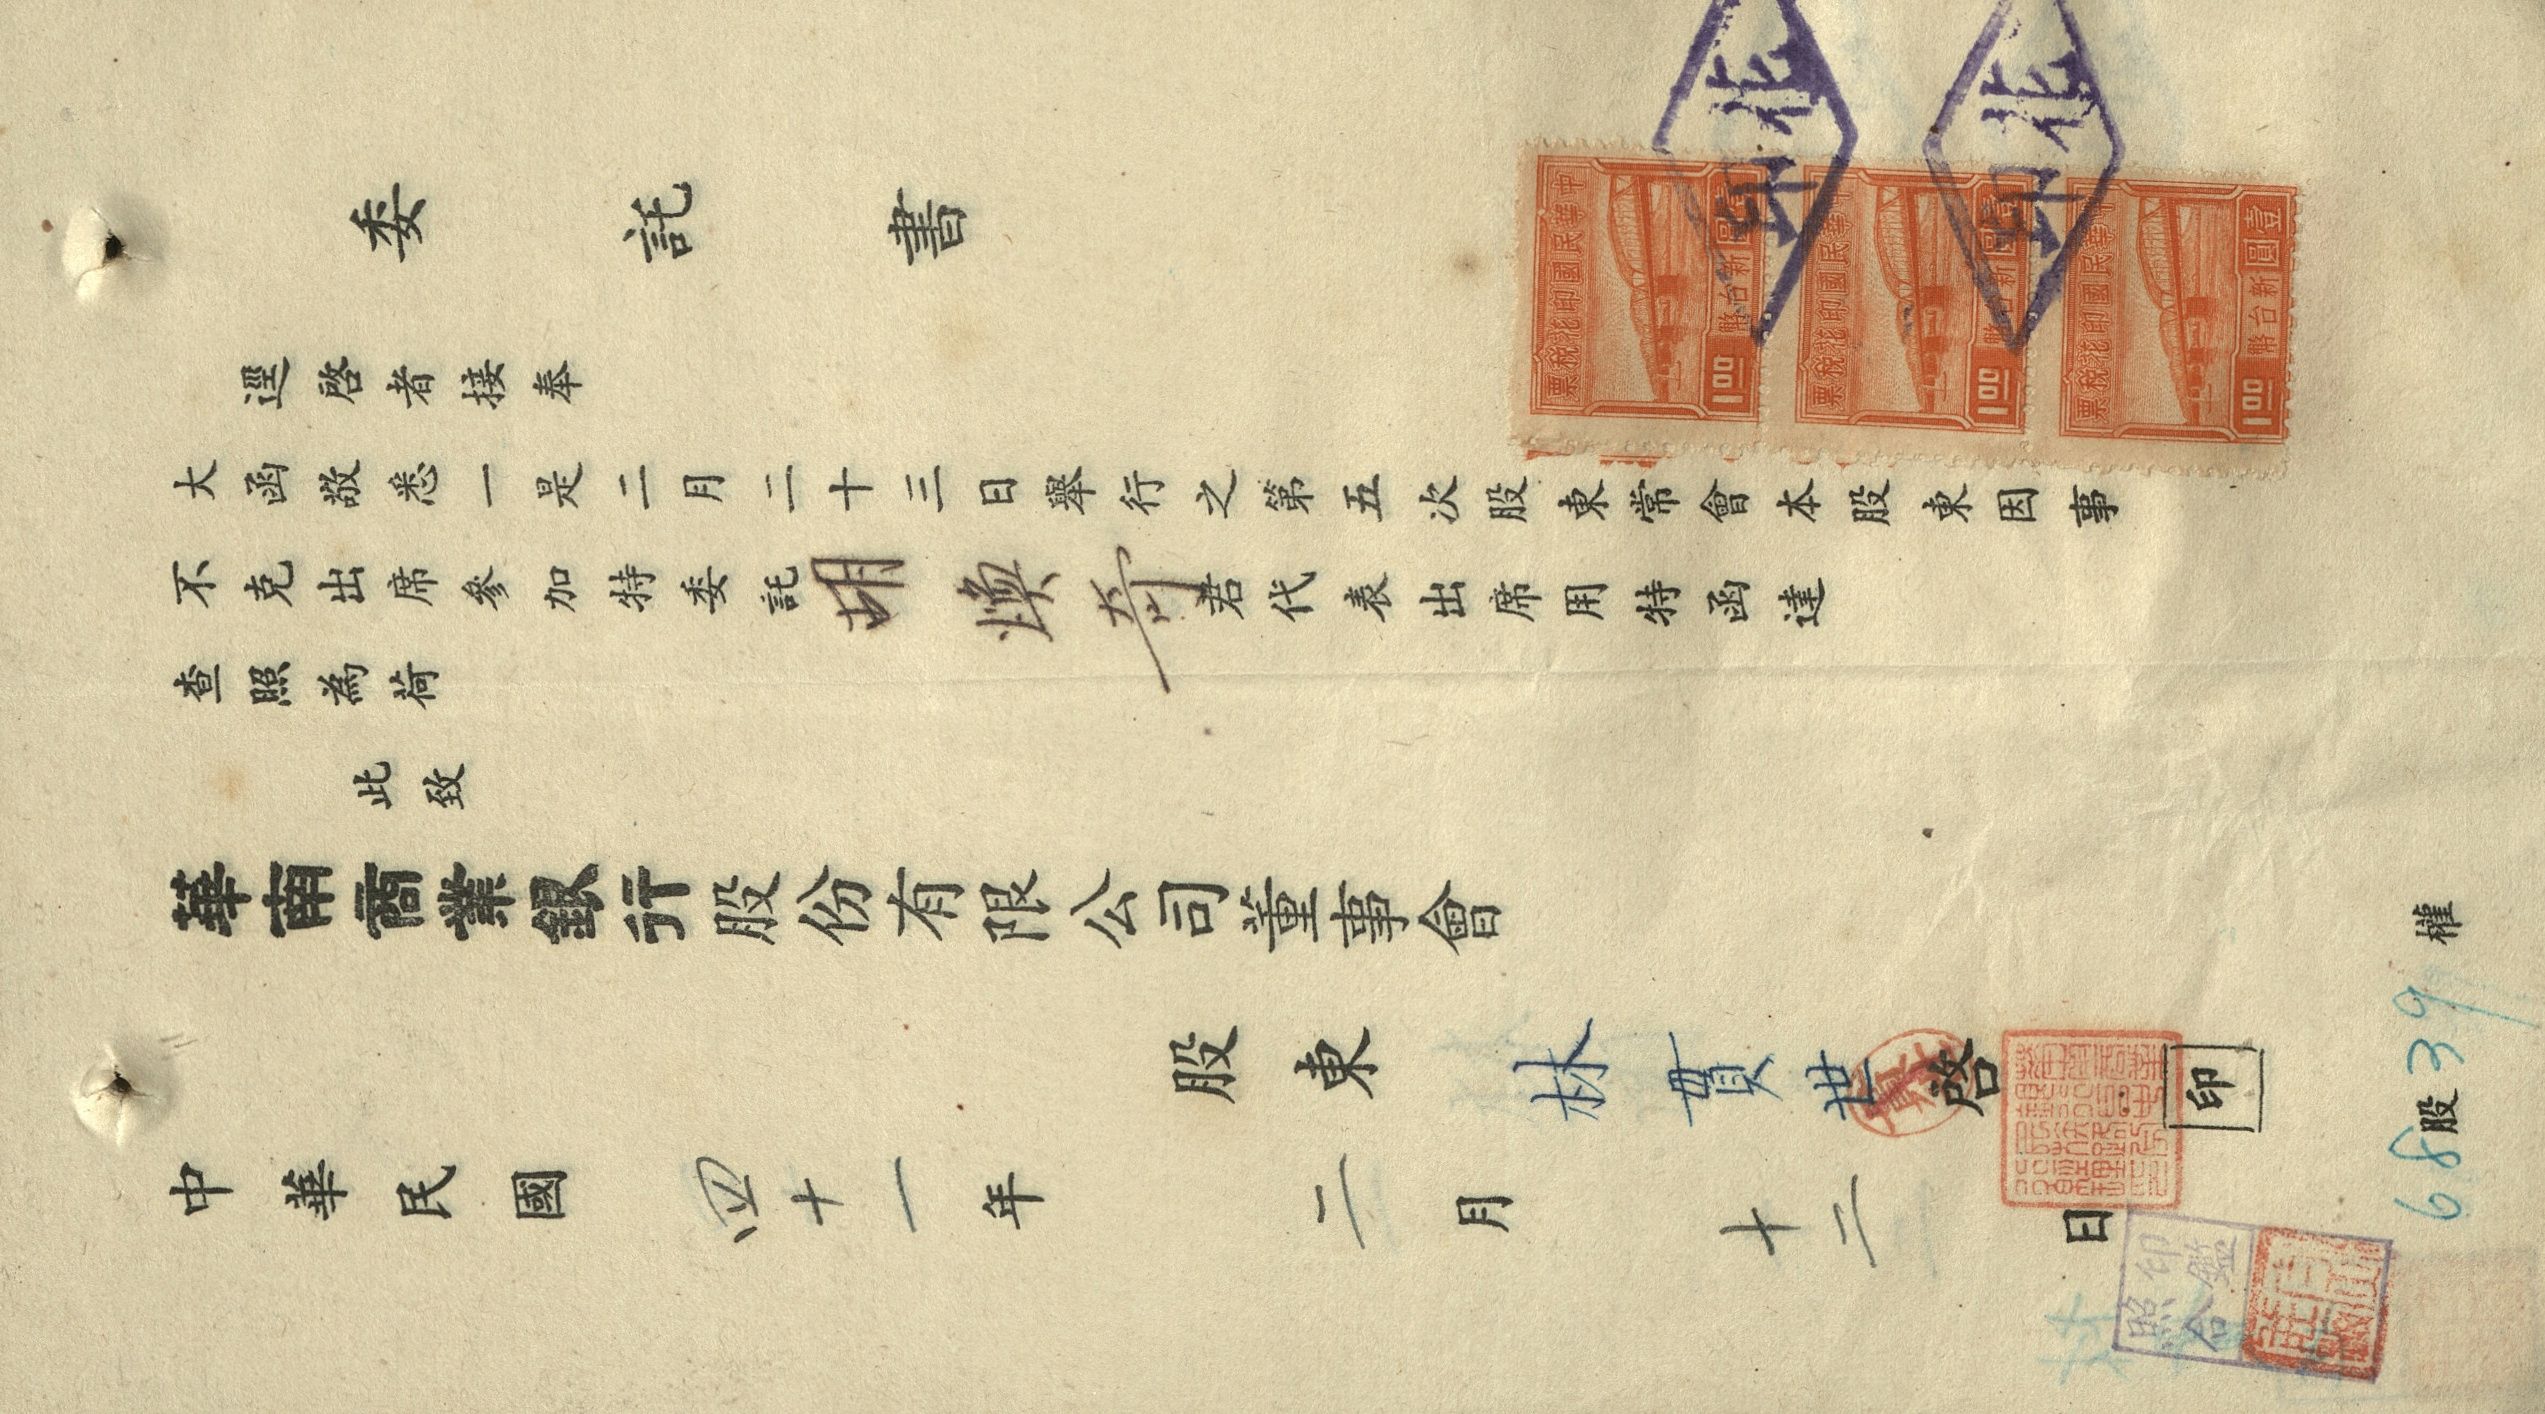 委託書
逕啓者接奉
大函敬悉一是二月二十三日舉行之第五次股東常會本股東因事
不克出席參加特委託胡煥奇君代表出席用特函達
查照為荷
此致
華南商業銀行股份有限公司董事會
股東 林貫世 啓 印
中華民國四十一年二月十二日
68股39權
中華民國印花稅票
壹圓
新台幣
1.00
中華民國印花稅票
壹圓
新台幣
1.00
中華民國印花稅票
壹圓
新台幣
1.00
印鑑
照合